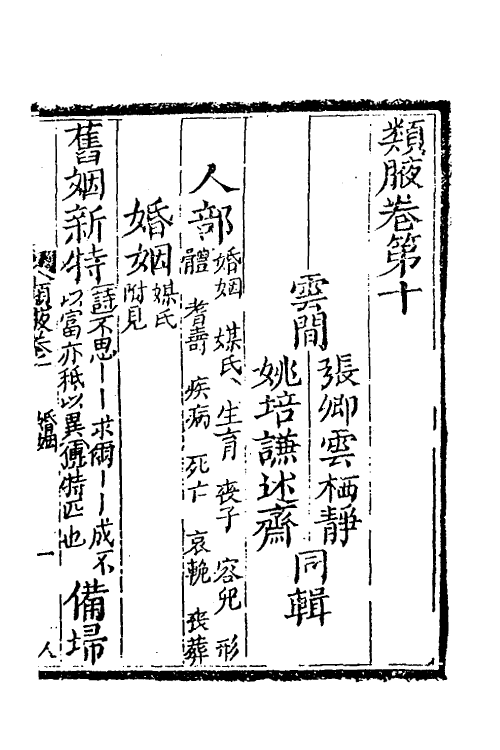 類腋卷第十
雲間
張卿雲栖靜
姚培謙述齋
同輯
人部
婚姻 媒氏 生育 喪子 容皃 形
體 耆壽 疾病 死亡 哀輓 喪葬
婚姻
媒氏
附見
舊姻新特
詩不思丨丨求爾丨丨成不
以富亦秖以異
特匹也
備埽
類腋卷
婚姻
一
人